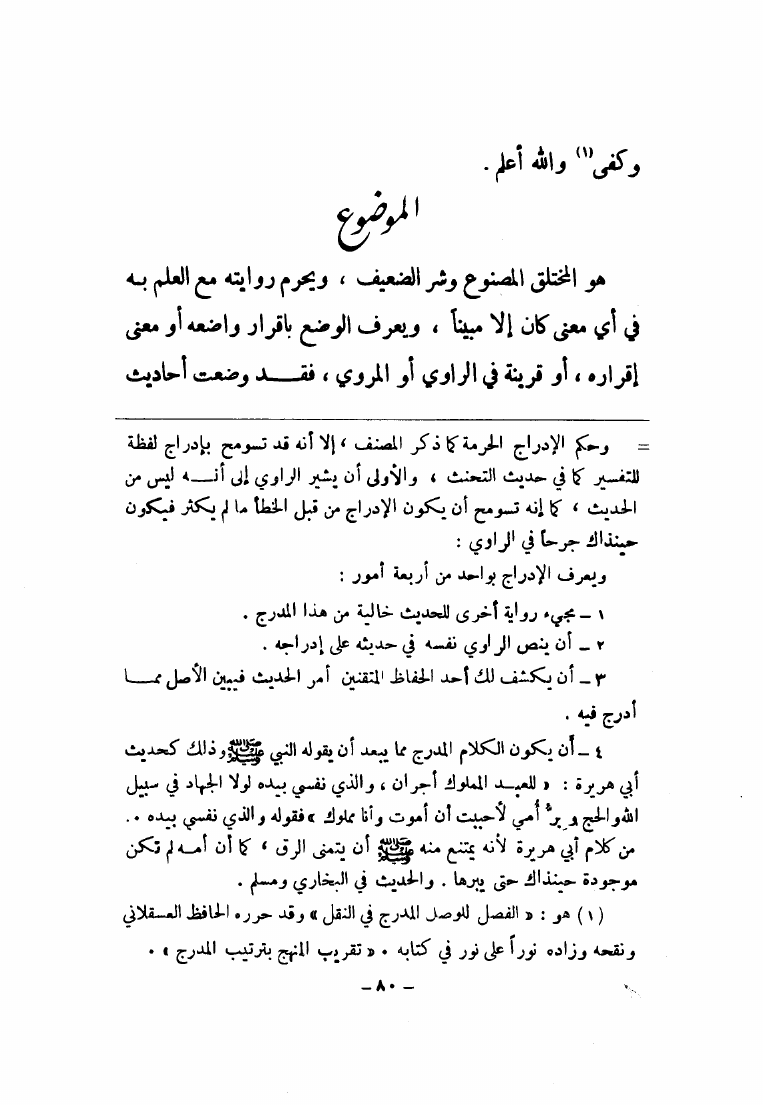 وكفى(١) والله أعلم .
الموضوع
هو المختلق المصنوع وشر الضعيف ، ويحرم روايته مع العلم به
في أي معنى كان إلا مبيناً ، ويعرف الوضع باقرار واضعه أو معنى
إقراره ، أو قرينة في الراوي أو المروي ، فقـــد وضعت أحاديث
= وحكم الإدراج الحرمة كما ذكر المصنف ، إلا أنه قد تسومح بإدراج لفظة
للتفسير كما في حديث التحنث ، والأولى أن يشير الراوي إلى أنـــه ليس من
الحديث ، كما إنه تسومح أن يكون الإدراج من قبل الخطأ ما لم يكثر فيكون
حينذاك جرحاً في الراوي :
ويعرف الإدراج بواحد من أربعة أمور :
١ – مجيء رواية أخرى للحديث خالية من هذا المدرج .
٢ – أن ينص الراوي نفسه في حديثه على إدراجه .
٣ – أن يكشف لك أحد الحفاظ المتقنين أمر الحديث فيبين الأصل ممـــا
أدرج فيه .
٤ – أن يكون الكلام المدرج مما يبعد أن يقوله النبي ﷺ وذلك كحديث
أبي هريرة : « للعبـد المملوك أجران ، والذي نفسي بيده لولا الجهاد في سبيل
الله والحج وبرُّ أمي لأحببت أن أموت وأنا مملوك » فقوله والذي نفسي بيده ..
من كلام أبي هريرة لأنه يمتنع منه ﷺ أن يتمنى الرق ، كما أن أمـه لم تكن
موجودة حينذاك حتى يبرها . والحديث في البخاري ومسلم .
(١) هو : « الفصل للوصل المدرج في النقل » وقد حرره الحافظ العسقلاني
ونقحه وزاده نوراً على نور في كتابه . « تقريب المنهج بترتيب المدرج » .
– ٨٠ –